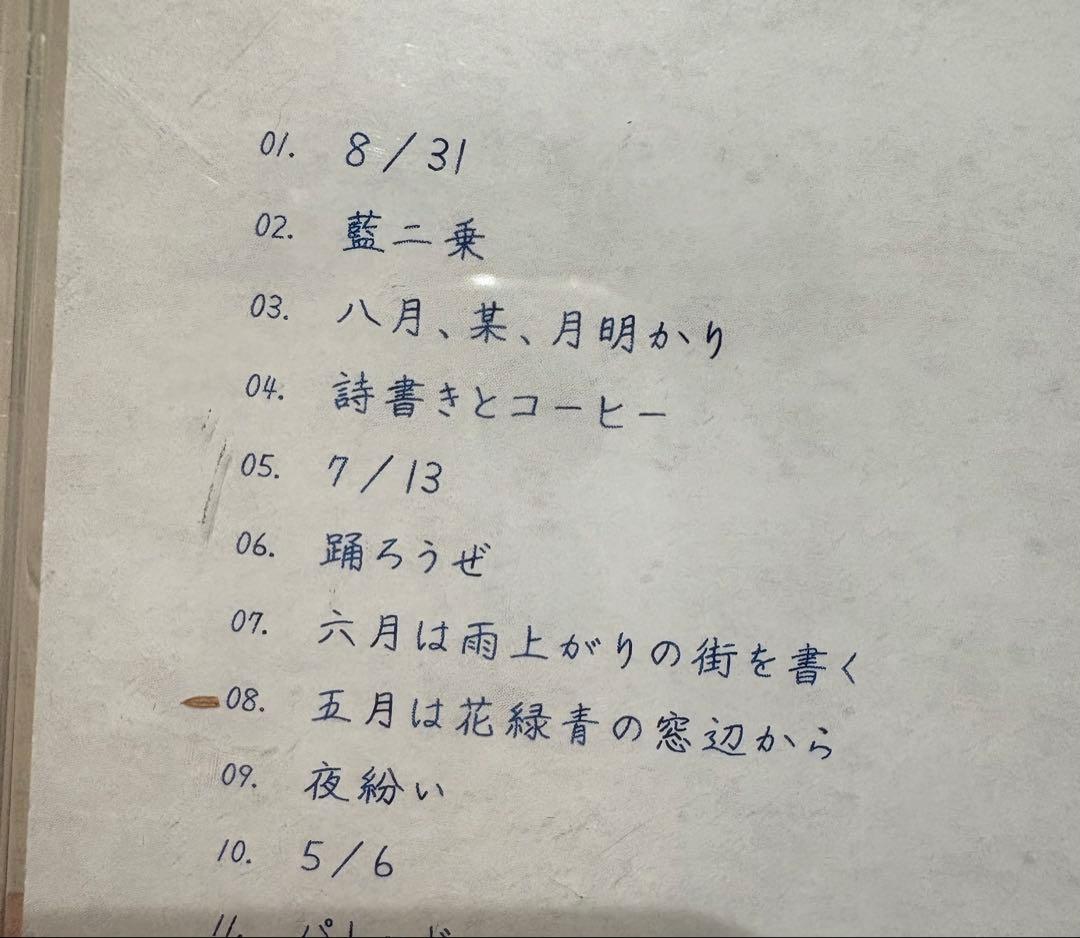 01. 8/31
02. 藍二乗
03. 八月、某、月明かり
04. 詩書きとコーヒー
05. 7/13
06. 踊ろうぜ
07. 六月は雨上がりの街を書く
08. 五月は花緑青の窓辺から
09. 夜紛い
10. 5/6
11. パレード